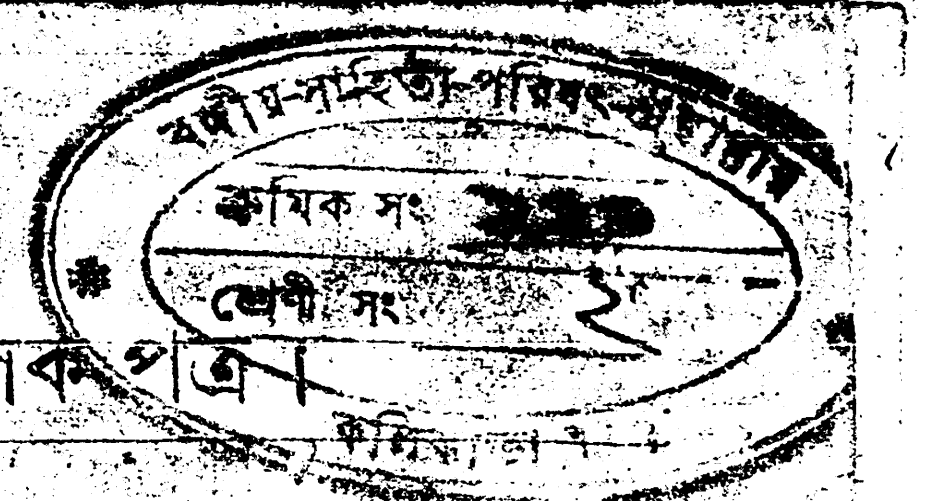 বঙ্গীয়-সাহিত্য-পরিষৎ-গ্রন্থাগার
ক্রমিক সং
শ্রেণী সং ২
পত্র।